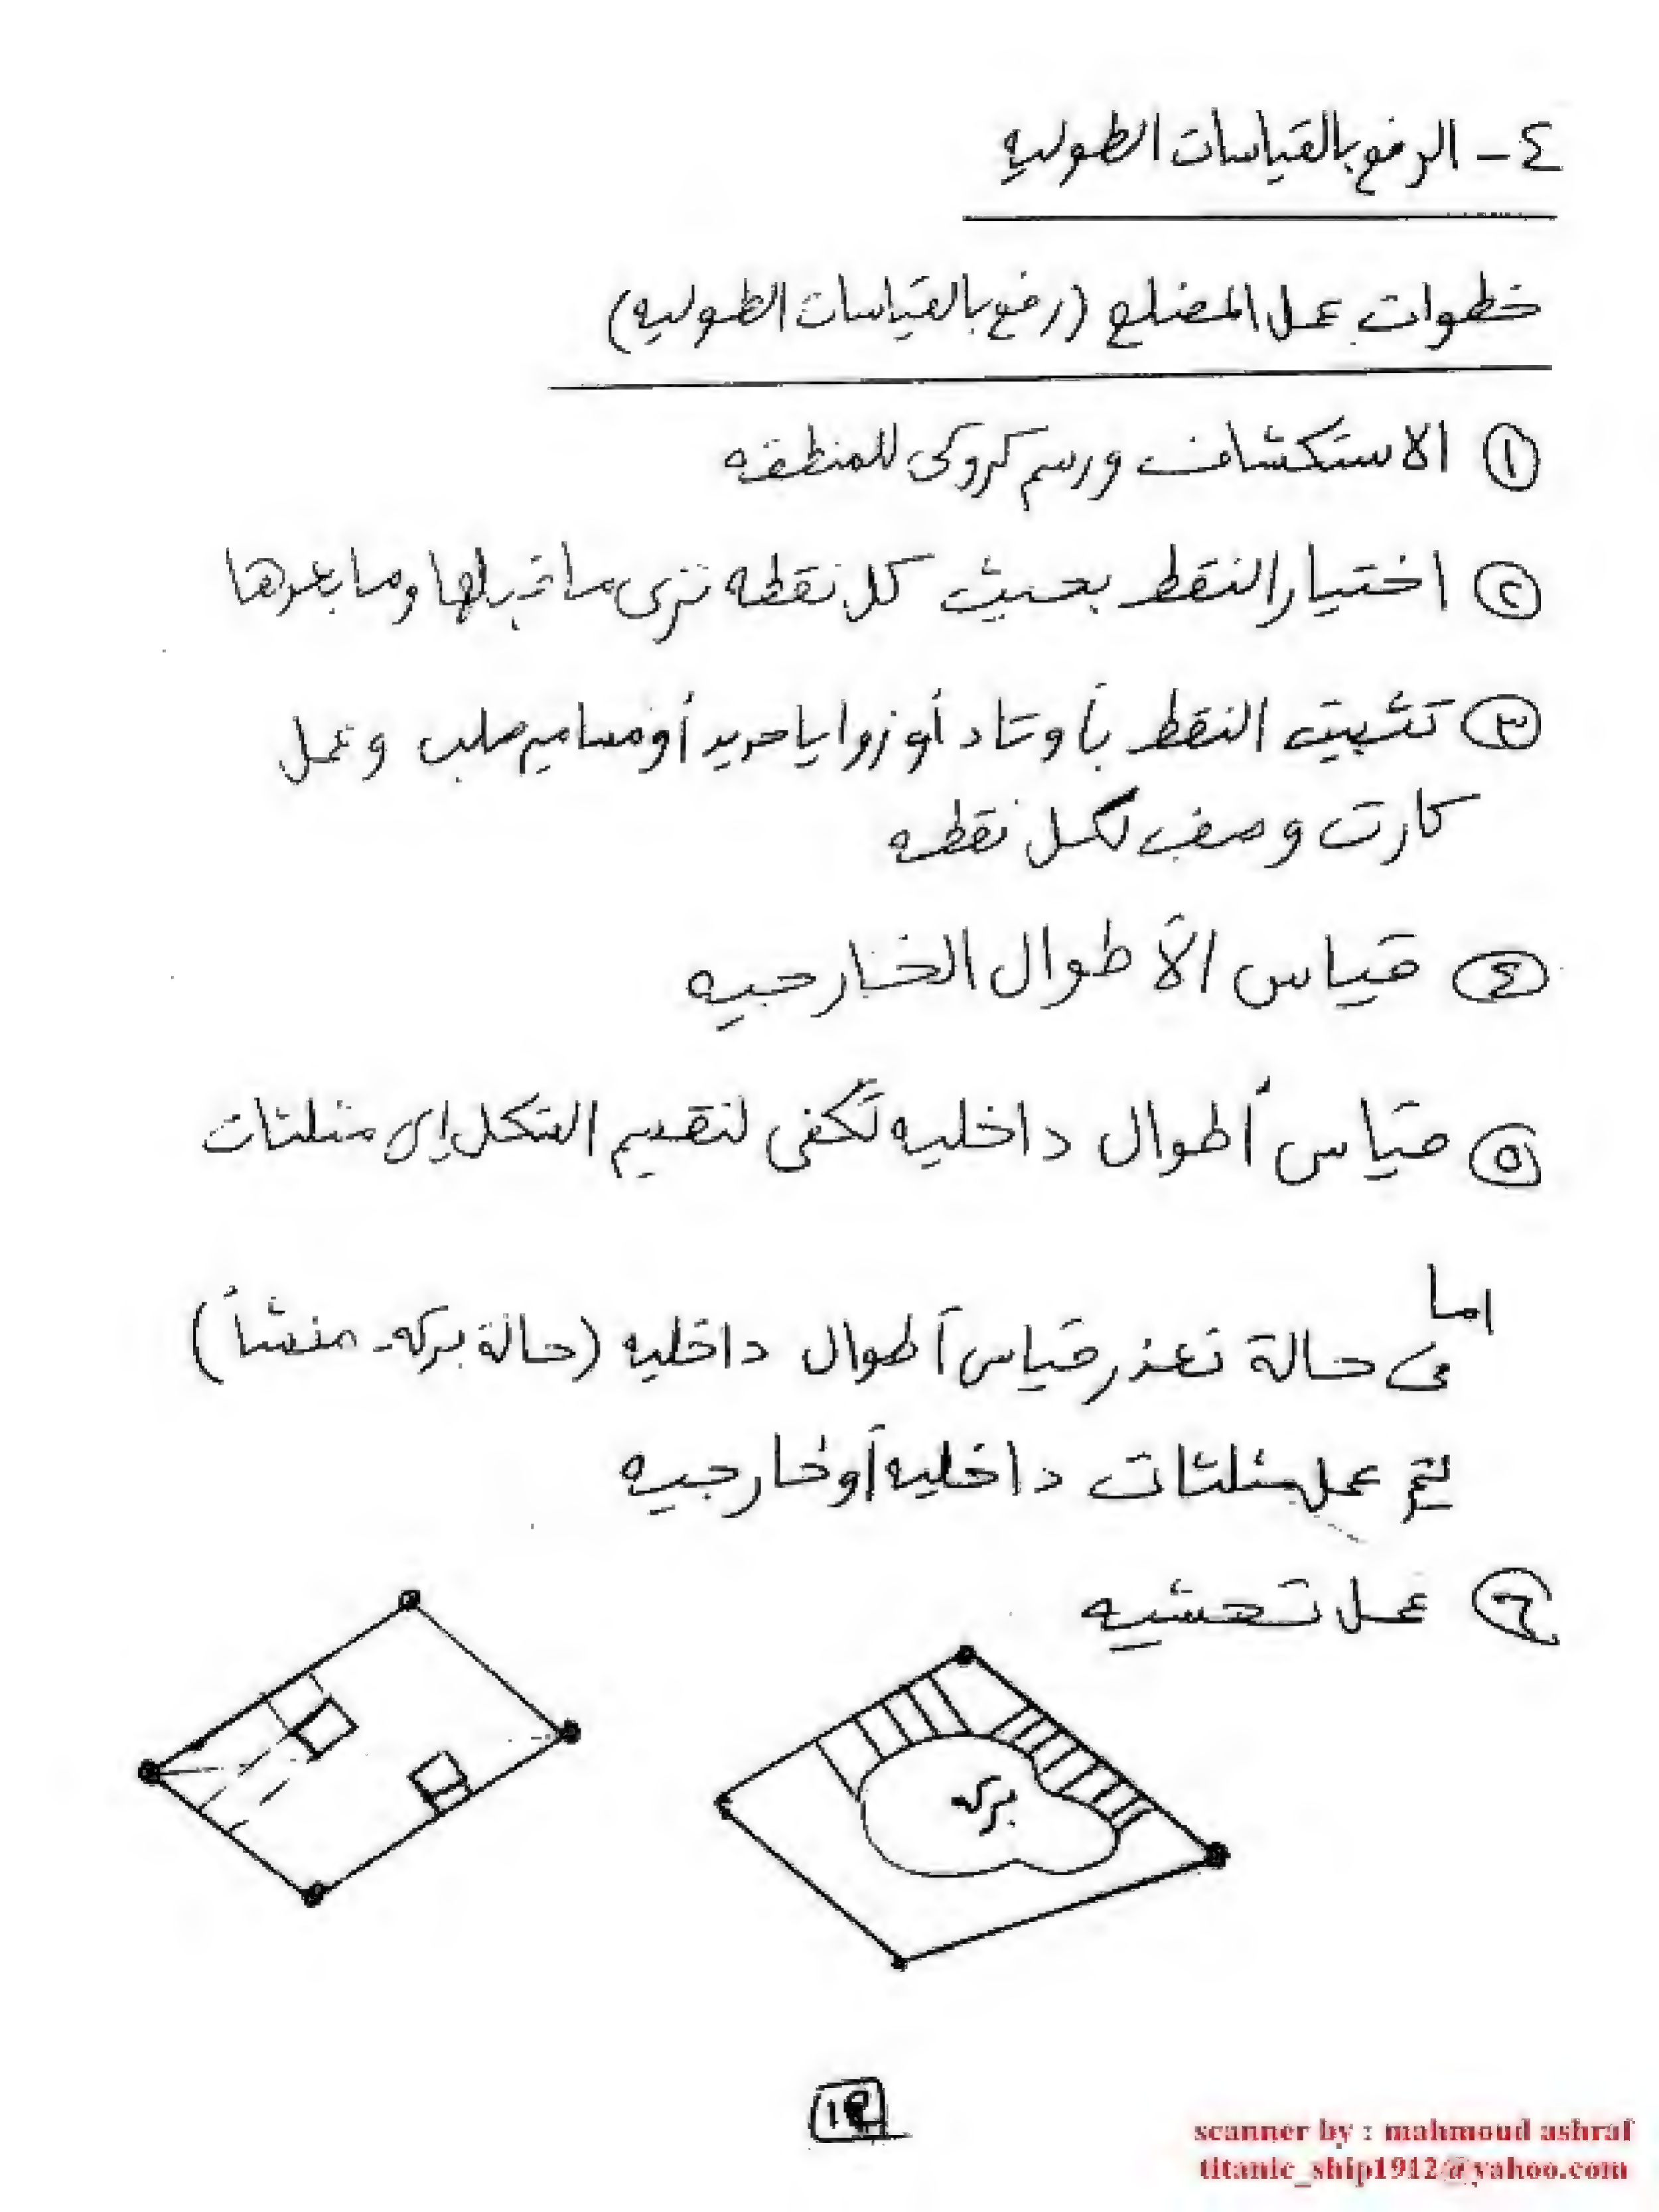 ٤ - الرفع بالقياسات الطوليه
خطوات عمل المضلع (رفع بالقياسات الطوليه)
① الاستكشاف ورسم كروكى للمنطقه
② اختيار النقط بحيث كل نقطه ترى ما قبلها وما بعدها
③ تثبيت النقط بأوتاد أو زوايا حديد أو مسامير صلب وعمل
كارت وصف لكل نقطه
④ قياس الأطوال الخارجيه
⑤ قياس أطوال داخليه تكفى لتقسيم الشكل إلى مثلثات
اما
فى حالة تعذر قياس أطوال داخليه (حالة بركه - منشأ)
يتم عمل مثلثات داخليه أو خارجيه
⑥ عمل تحشيه
بركه
scanner by : mahmoud ashraf
titanic_ship1912@yahoo.com